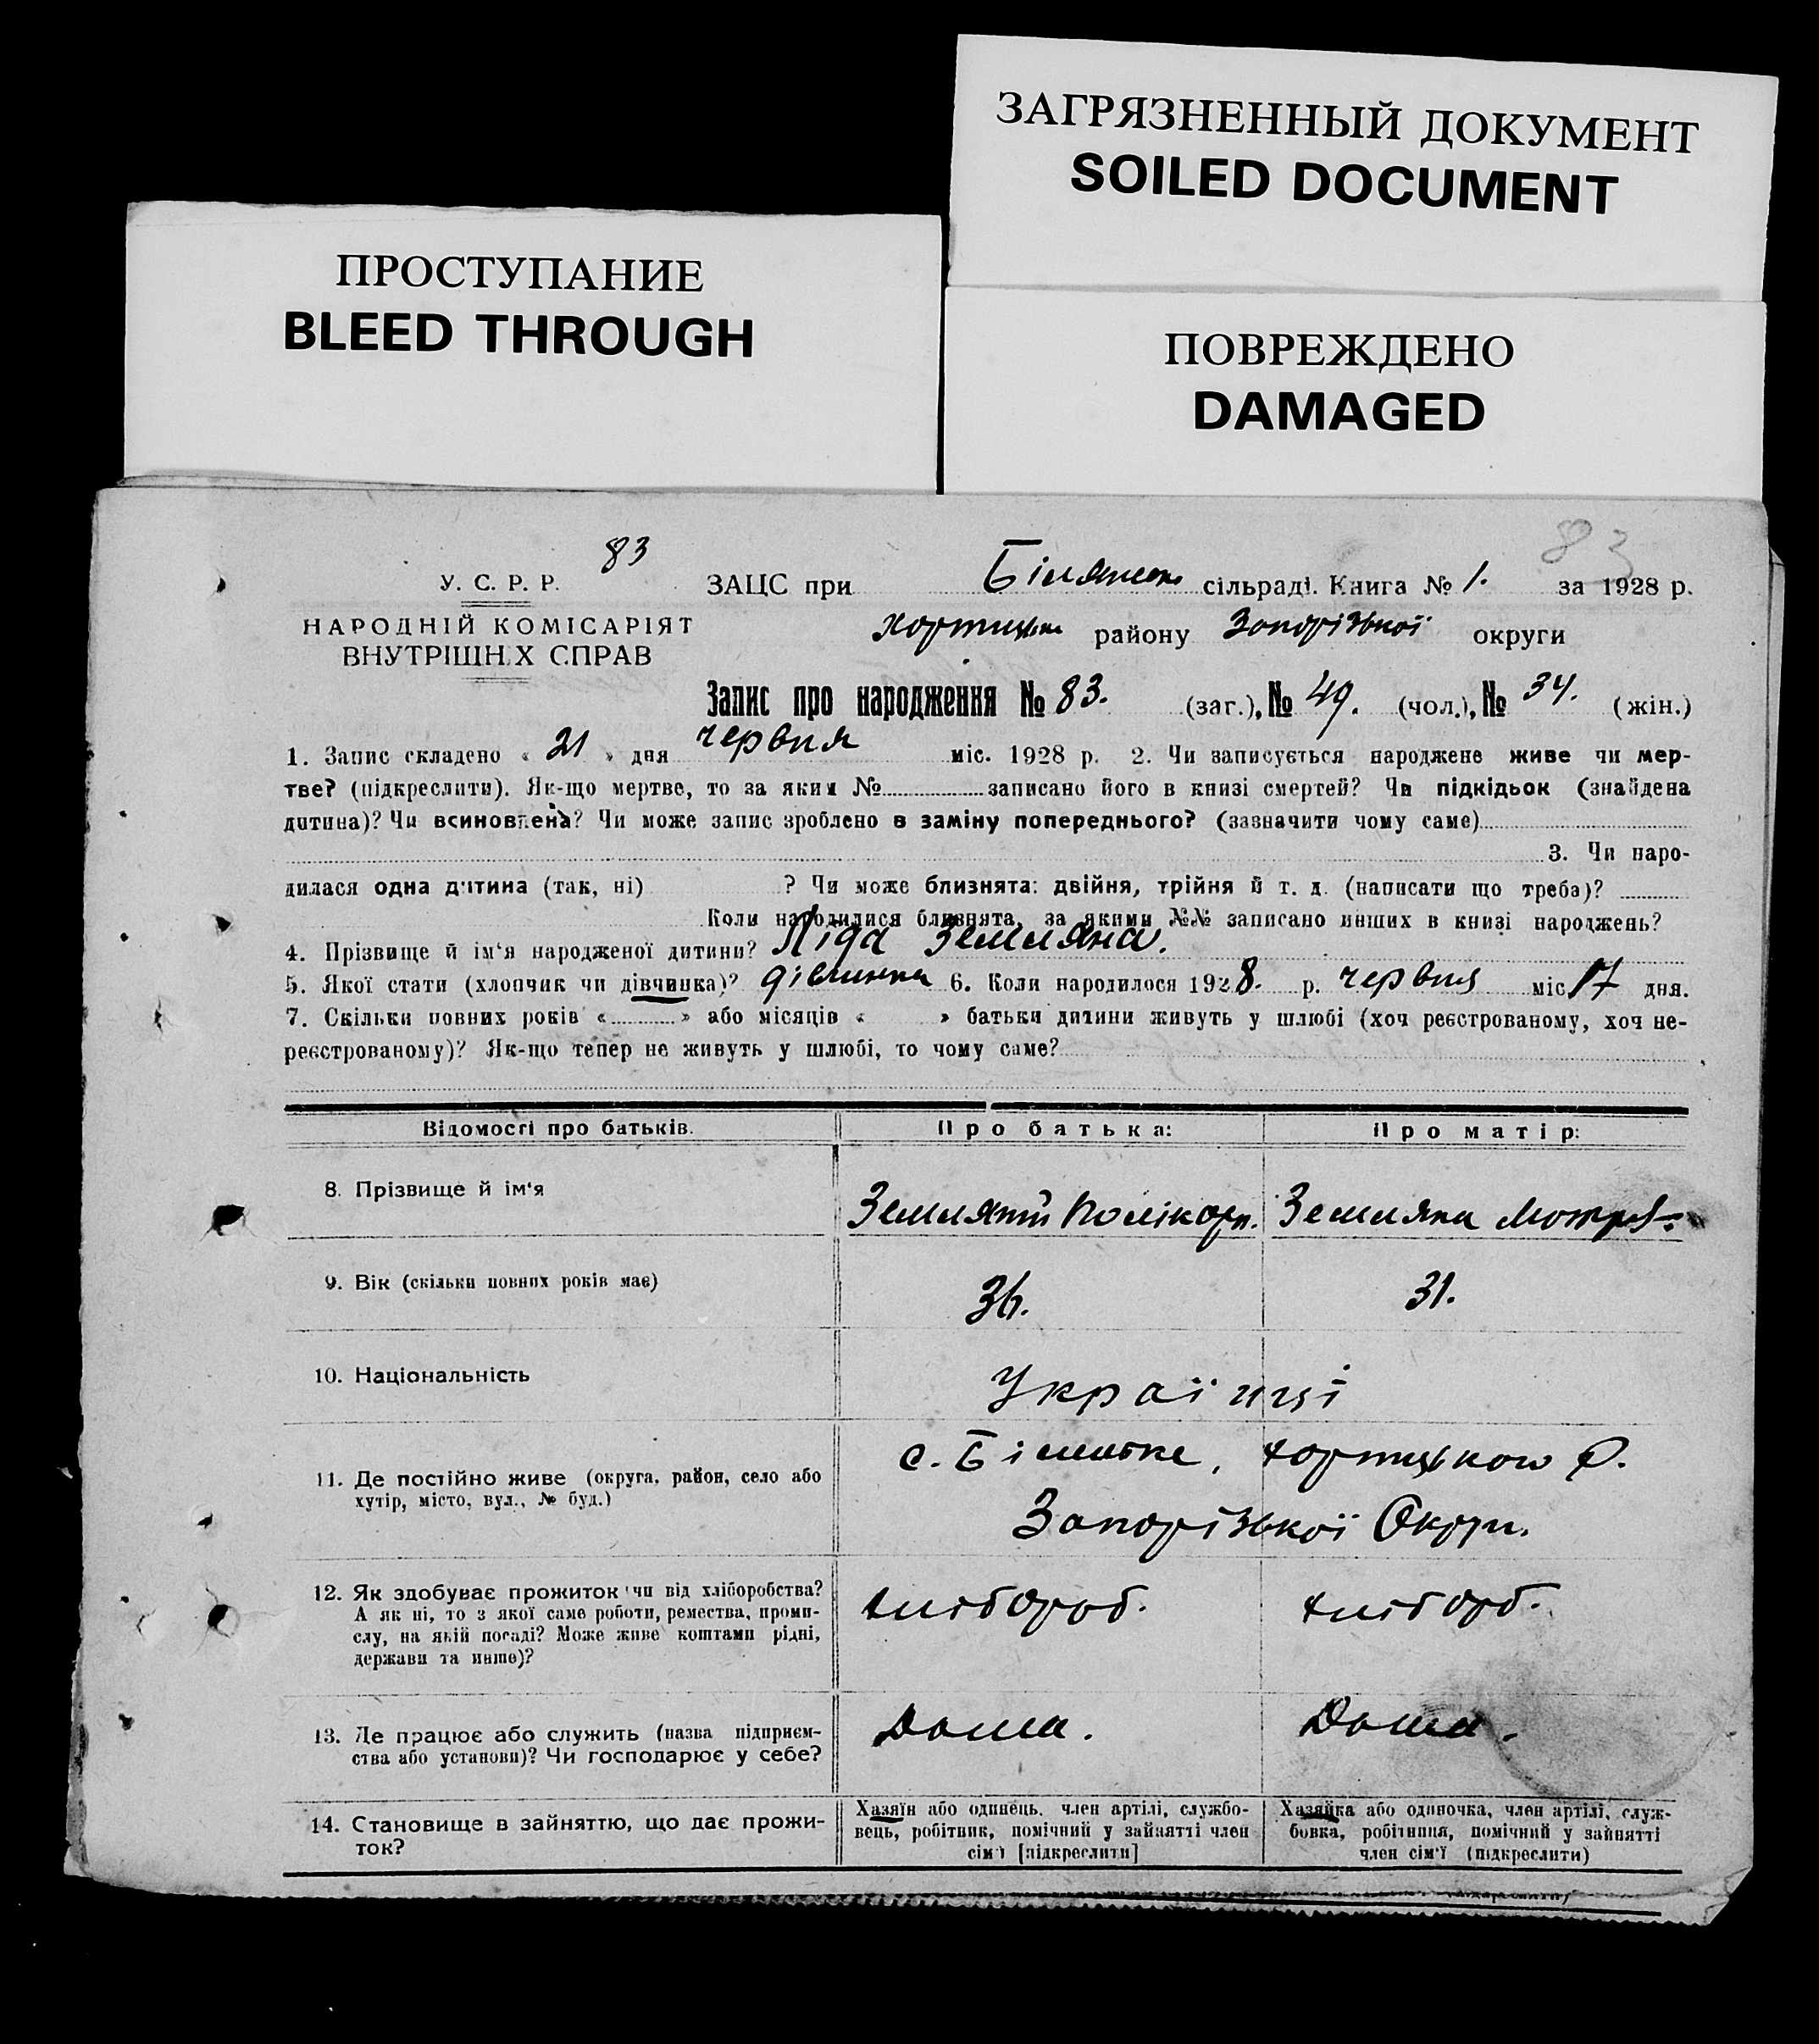 ЗАГРЯЗНЕННЫЙ ДОКУМЕНТ
SOILED DOCUMENT
ПРОСТУПАНИЕ
BLEED THROUGH
ПОВРЕЖДЕНО
DAMAGED
83
83
У. С. Р. Р.
ЗАЦС при сільраді. Книга № 1. за 1928 р.
НАРОДНІЙ КОМІСАРІЯТ
ВНУТРІШНІХ СПРАВ
району Запорізької округи
Запис про народження № 83. (заг.), № 49. (чол.), № 34. (жін.)
1. Запис складено « 21 » дня червня міс. 1928 р. 2. Чи записується народжене живе чи мер-
тве? (підкреслити). Як-що мертве, то за яким № записано його в книзі смертей? Чи підкідьок (знайдена
дитина)? Чи всиновлена? Чи може запис зроблено в заміну попереднього? (зазначити чому саме)
3. Чи наро-
дилася одна дитина (так, ні) ? Чи може близнята: двійня, трійня й т. д. (написати що треба)?
Коли народилися близнята, за якими №№ записано инших в книзі народжень?
4. Прізвище й ім'я народженої дитини? Ліда Земляна.
5. Якої стати (хлопчик чи дівчинка)? дівчинка 6. Коли народилося 1928. р. червня міс 17 дня.
7. Скільки повних років « » або місяців « » батьки дитини живуть у шлюбі (хоч реєстрованому, хоч не-
реєстрованому)? Як-що тепер не живуть у шлюбі, то чому саме?
Відомості про батьків. Про батька: Про матір:
8. Прізвище й ім'я Земляний Полікарп. Земляна Мотря.
9. Вік (скільки повних років має) 36. 31.
10. Національність Українці
11. Де постійно живе (округа, район, село або
хутір, місто, вул., № буд.)
с. Хортицького Р.
Запорізької Округи.
12. Як здобуває прожиток чи від хліборобства?
А як ні, то з якої саме роботи, ремества, проми-
слу, на якій посаді? Може живе коштами рідні,
держави та инше)?
хлібороб. хлібороб.
13. Де працює або служить (назва підприєм-
ства або установи)? Чи господарює у себе?
Дома. Дома.
14. Становище в зайняттю, що дає прожи-
ток?
Хазяїн або одинець, член артілі, службо-
вець, робітник, помічний у зайнятті член
сім'ї [підкреслити]
Хазяйка або одиночка, член артілі, служ-
бовка, робітниця, помічний у зайнятті
член сім'ї (підкреслити)